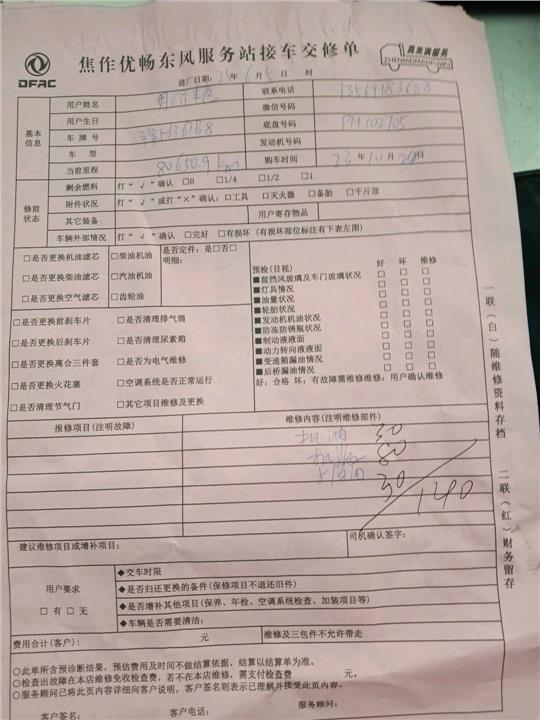 DFAC
焦作优畅东风服务站接车交修单
真美满服务
ZHENMEIMANFUWU
进厂日期: 25年 6月5日 时
基本信息
用户姓名
联系电话 13569183688
用户生日
微信号码
车牌号
底盘号码 PH102705
车型
发动机号码
当前里程 80650.9 km
购车时间 23年10月26日
修前状态
剩余燃料 打“√”确认 □0 □1/4 □1/2 □1
附件状况 打“√”或打“×”确认: □工具 □灭火器 □备胎 □千斤顶
其它装备
用户寄存物品
车辆外部情况 打“√”确认 □完好 □有损坏 (有损坏部位标注有下表左图)
□是否更换机油滤芯 □柴油机油
□是否更换柴油滤芯 □汽油机油
□是否更换空气滤芯 □齿轮油
是否定件: 是□否□
明细:
□是否更换前刹车片 □是否清理排气筒
□是否更换后刹车片 □是否清理尿素箱
□是否更换离合三件套 □是否为电气维修
□是否更换火花塞 □空调系统是否正常运行
□是否清理节气门 □其它项目维修及更换
预检(目视) 好 坏 维修
■前挡风玻璃及车门玻璃状况 □ □ □
■灯具情况 □ □ □
■油量状况 □ □ □
■轮胎状况 □ □ □
■发动机机油状况 □ □ □
■防冻防锈瓶状况 □ □ □
■制动液液面 □ □ □
■动力转向液液面 □ □ □
■变速箱漏油情况 □ □ □
■后桥漏油情况 □ □ □
好: 合格 坏: 有故障需维修维修: 用户确认维修
报修项目(注明故障)
维修内容(注明维修部件)
机油 30
80
30
140
建议维修项目或增补项目:
司机确认签字:
用户要求
□有 □无
◆交车时限
◆是否归还更换的备件(保修项目不退还旧件)
◆是否增补其他项目(保养、年检、空调系统检查、加装项目等)
◆车辆是否需要清洁:
费用合计(客户): 元
维修及三包件不允许带走
○此单所含预诊断结果, 预估费用及时间不做结算依据, 结算以结算单为准。
○检查出故障在本店维修免收检查费, 若不在本店维修, 需支付检查费 元。
○服务顾问已将此页内容详细向客户说明, 客户签名则表示已理解并接受此页内容。
客户签名: 客户电话: 服务顾问:
一联(白)随维修资料存档
二联(红)财务留存